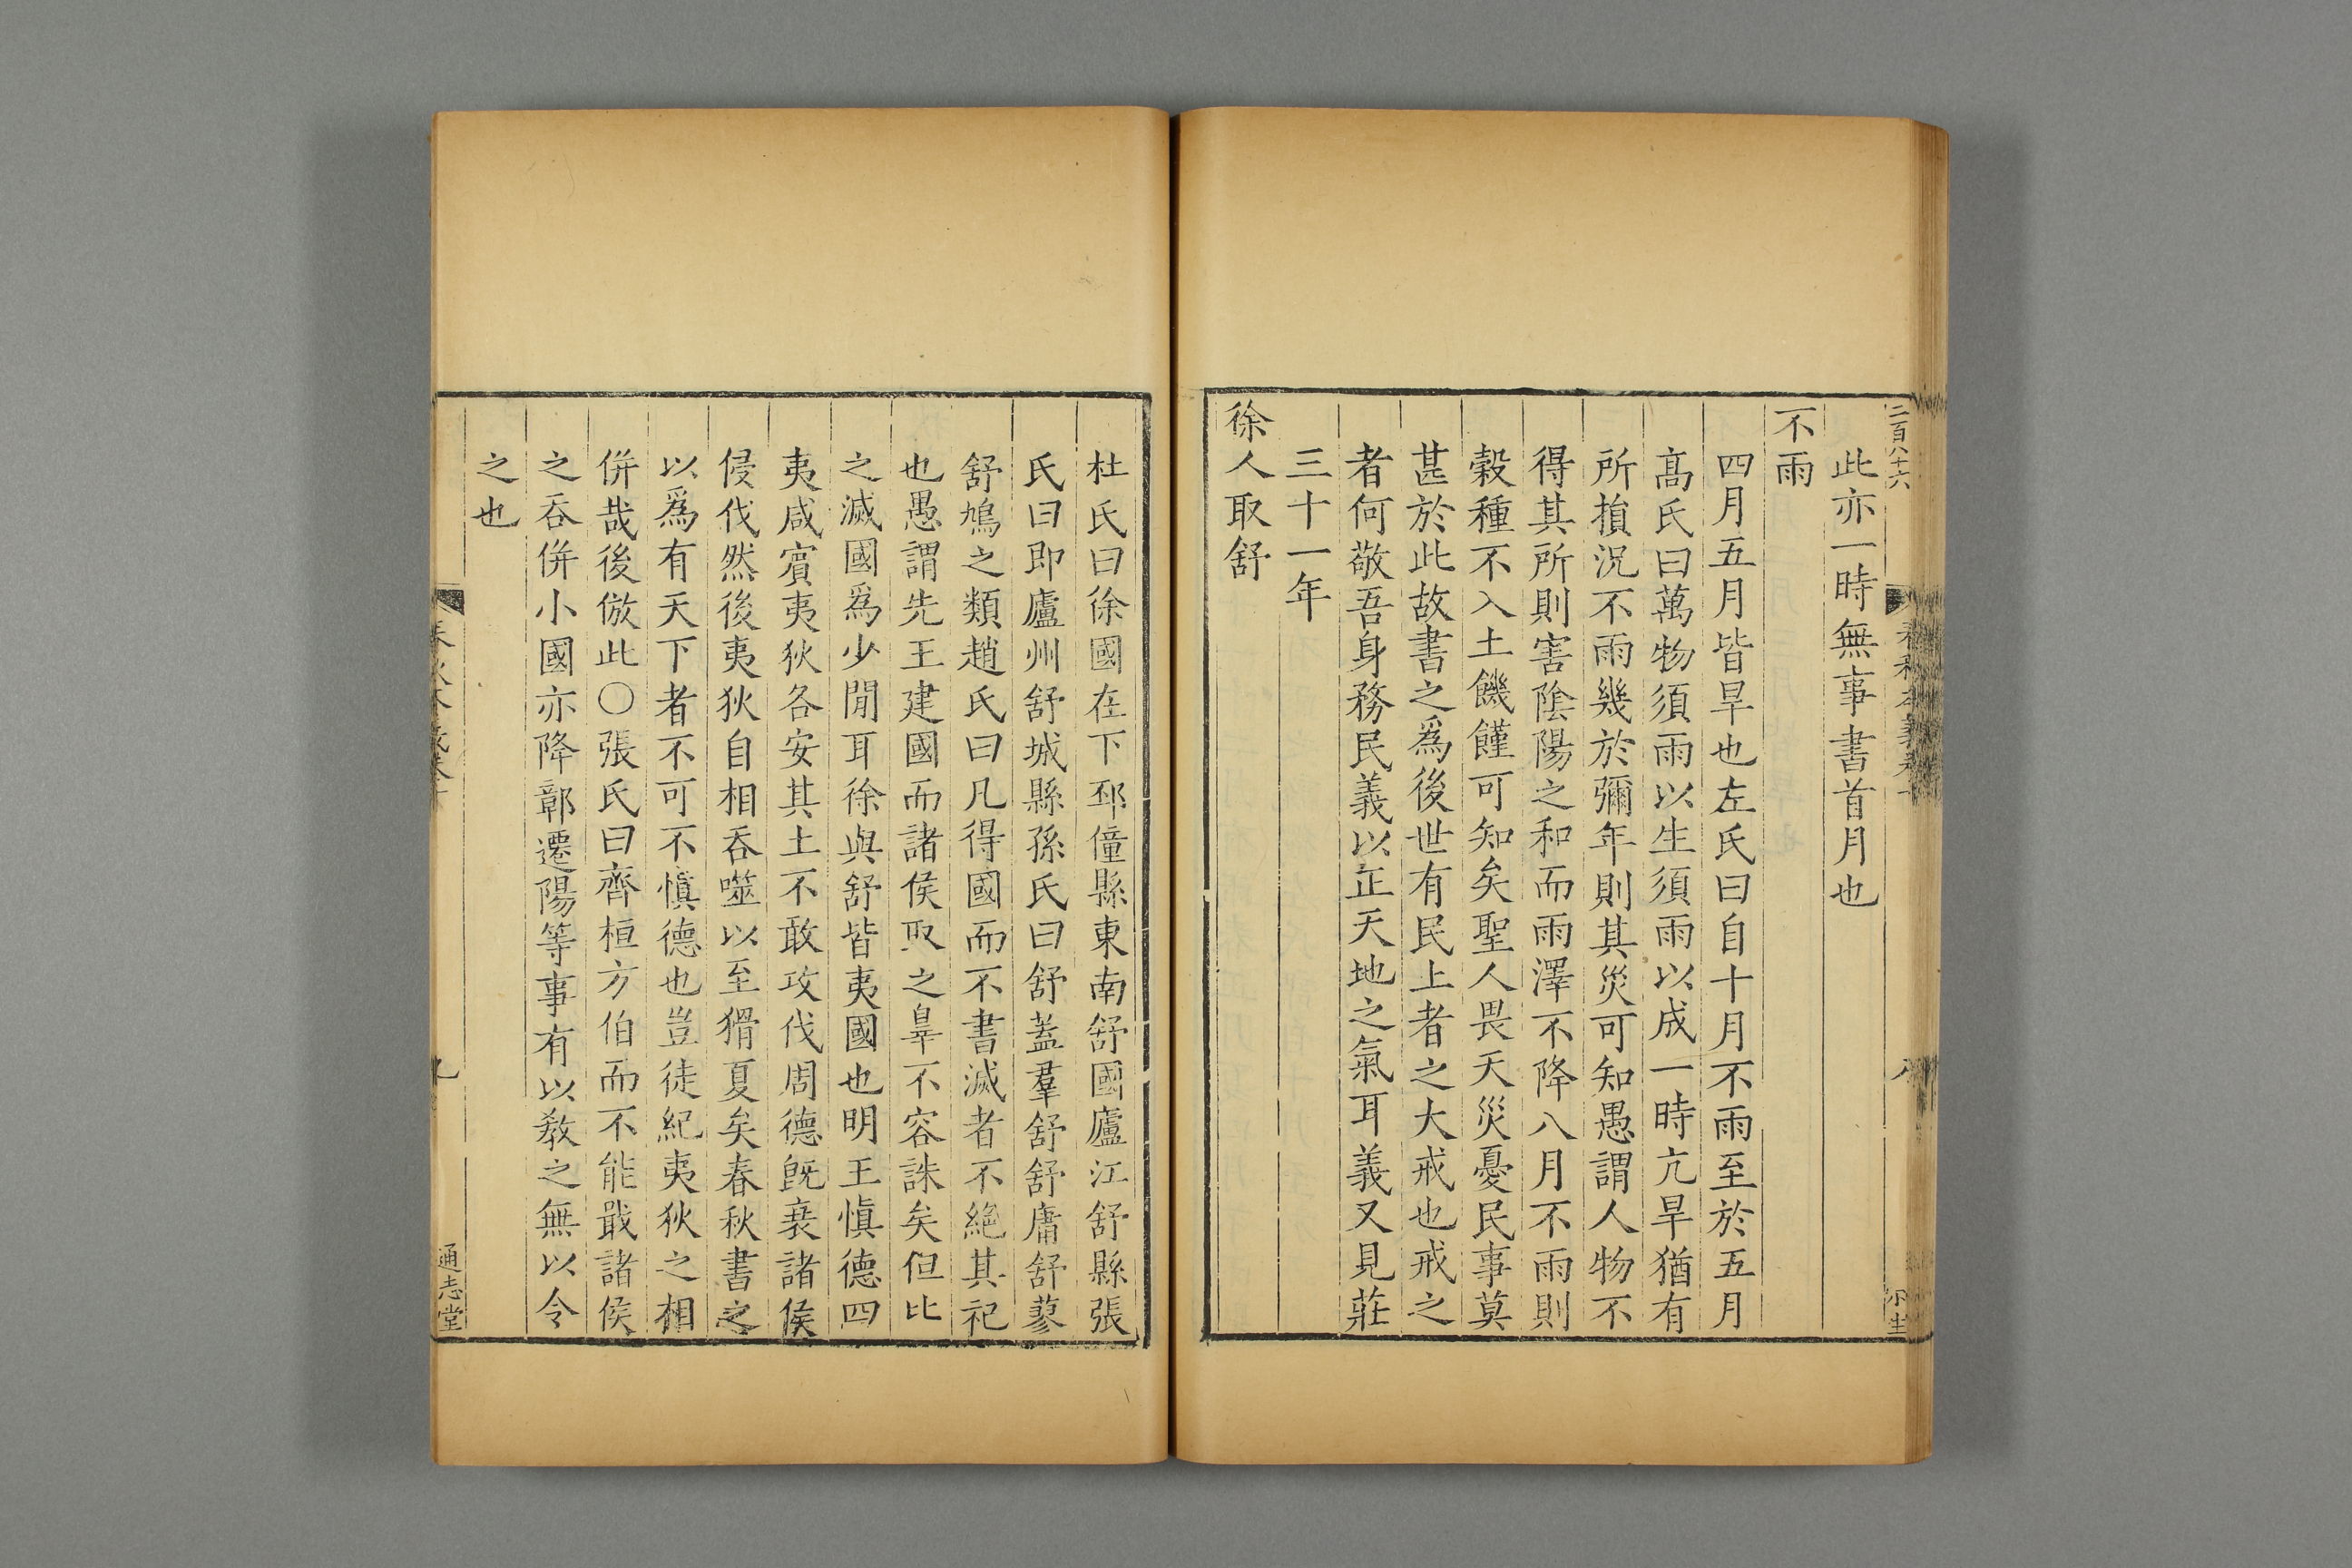 二百八十六
此亦一時無事書首月也
不雨
四月五月皆旱也左氏曰自十月不雨至於五月
髙氏曰萬物須雨以生須雨以成一時亢旱猶有
所損況不雨幾於彌年則其災可知愚謂人物不
得其所則害陰陽之和而雨澤不降八月不雨則
穀種不入土饑饉可知矣聖人畏天災憂民事莫
甚於此故書之爲後世有民上者之大戒也戒之
者何敬吾身務民義以正天地之氣耳義又見莊
三十一年
徐人取舒
杜氏曰徐國在下邳僮縣東南舒國廬江舒縣張
氏曰即廬州舒城縣孫氏曰舒蓋羣舒舒庸舒蓼
舒鳩之類趙氏曰凡得國而不書滅者不絶其祀
也愚謂先王建國而諸侯取之辠不容誅矣但比
之滅國爲少閒耳徐與舒皆夷國也明王愼德四
夷咸賔夷狄各安其土不敢攻伐周德旣衰諸侯
侵伐然後夷狄自相吞噬以至猾夏矣春秋書之
以爲有天下者不可不愼德也豈徒紀夷狄之相
併哉後倣此〇張氏曰齊桓方伯而不能戢諸侯
之吞併小國亦降鄣遷陽等事有以敎之無以令
之也
通志堂